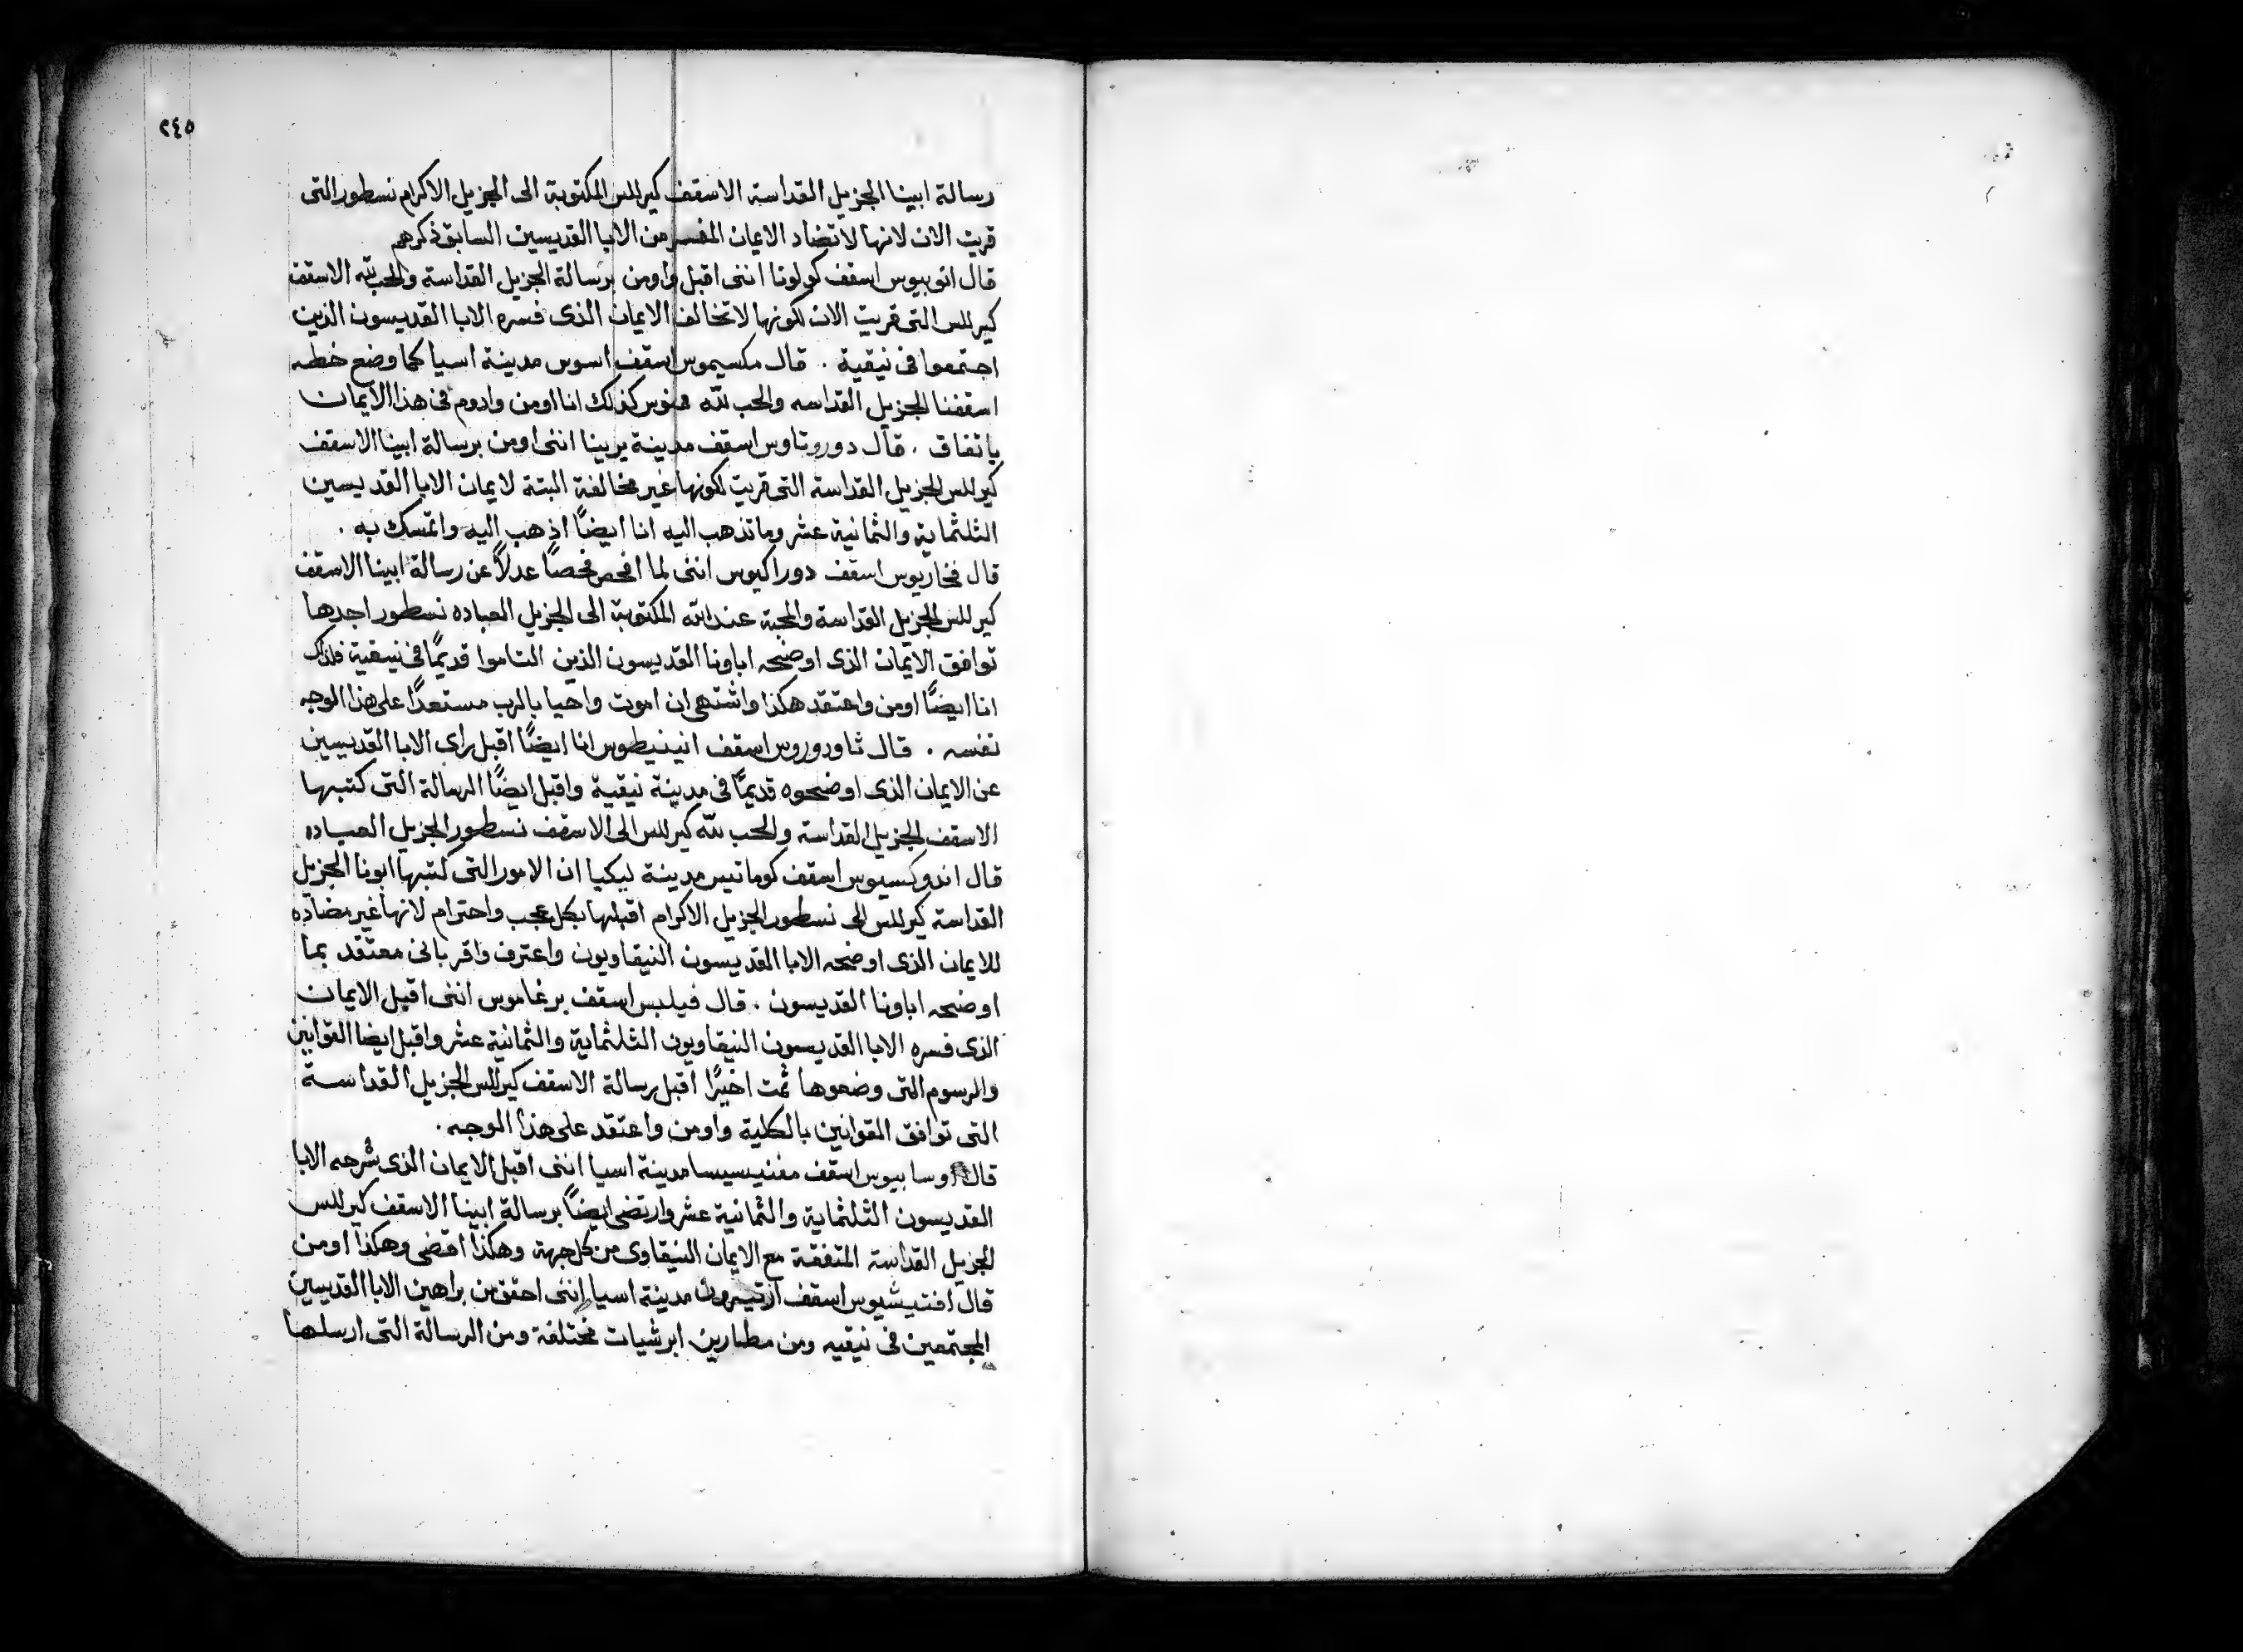 ٢٤٥
رسالة ابينا الجزيل القداسة الاسقف كيرللس المكتوبة الى الجزيل الاكرام نسطور التى
قريت الان لانها لا تضاد الايمان المفسر من الابا القديسين السابق ذكرهم
قال اتوبيوس اسقف كولونا اننى اقبل واومن برسالة الجزيل القداسة والمحب لله الاسقف
كيرللس التى قريت الان لكونها لا تخالف الايمان الذى فسره الابا القديسون الذين
اجتمعوا فى نيقية . قال مكسيموس اسقف اسوس مدينة اسيا كما وضع خطه
اسقفنا الجزيل القداسه والمحب لله ممنوس كذلك انا اومن وادوم فى هذا الايمان
باتفاق . قال دوروتاوس اسقف مدينة يربينا اننى اومن برسالة ابينا الاسقف
كيرللس الجزيل القداسة التى قريت لكونها غير مخالفة البتة لايمان الابا القديسين
الثلثماية والثمانية عشر وما تذهب اليه انا ايضًا اذهب اليه واتمسك به .
قال فخاريوس اسقف دوراكيوس اننى لما افحص فحصًا عدلًا عن رسالة ابينا الاسقف
كيرللس الجزيل القداسة والمحبة عند الله المكتوبة الى الجزيل العباده نسطور اجدها
توافق الايمان الذى اوضحه اباونا القديسون الذين التاموا قديمًا فى نيقية فلذلك
انا ايضًا اومن واعتقد هكذا واشتهى ان اموت واحيا بالرب مستعدًا على هذا الوجه
نفسه . قال ثاودوروس اسقف انينيطوس انا ايضًا اقبل راى الابا القديسين
عن الايمان الذى اوضحوه قديمًا فى مدينة نيقية واقبل ايضًا الرسالة التى كتبها
الاسقف الجزيل القداسة والمحب لله كيرللس الى الاسقف نسطور الجزيل العباده
قال اندوكسيوس اسقف كوماتيس مدينة ليكيا ان الامور التى كتبها ابونا الجزيل
القداسة كيرللس الى نسطور الجزيل الاكرام اقبلها بكل عجب واحترام لانها غير مضاده
للايمان الذى اوضحه الابا القديسون النيقاويون واعترف واقر بانى معتقد بما
اوضحه اباونا القديسون . قال فيلبس اسقف برغاموس اننى اقبل الايمان
الذى فسره الابا القديسون النيقاويون الثلثماية والثمانية عشر واقبل ايضا القوانين
والرسوم التى وضعوها ثمت اخيرًا اقبل رسالة الاسقف كيرللس الجزيل القداسة
التى توافق القوانين بالكلية واومن واعتقد على هذا الوجه .
قال اوسابيوس اسقف مغنيسيسا مدينة اسيا اننى اقبل الايمان الذى شرحه الابا
القديسون الثلثماية والثمانية عشر وارتضى ايضًا برسالة ابينا الاسقف كيرللس
الجزيل القداسة المتفقة مع الايمان النيقاوى من كل جهة وهكذا اقضى وهكذا اومن
قال افتيشيوس اسقف مدينة اسيا اننى احقق من براهين الابا القديسين
المجتمعين فى نيقيه ومن مطارين ابرشيات مختلفة ومن الرسالة التى ارسلها